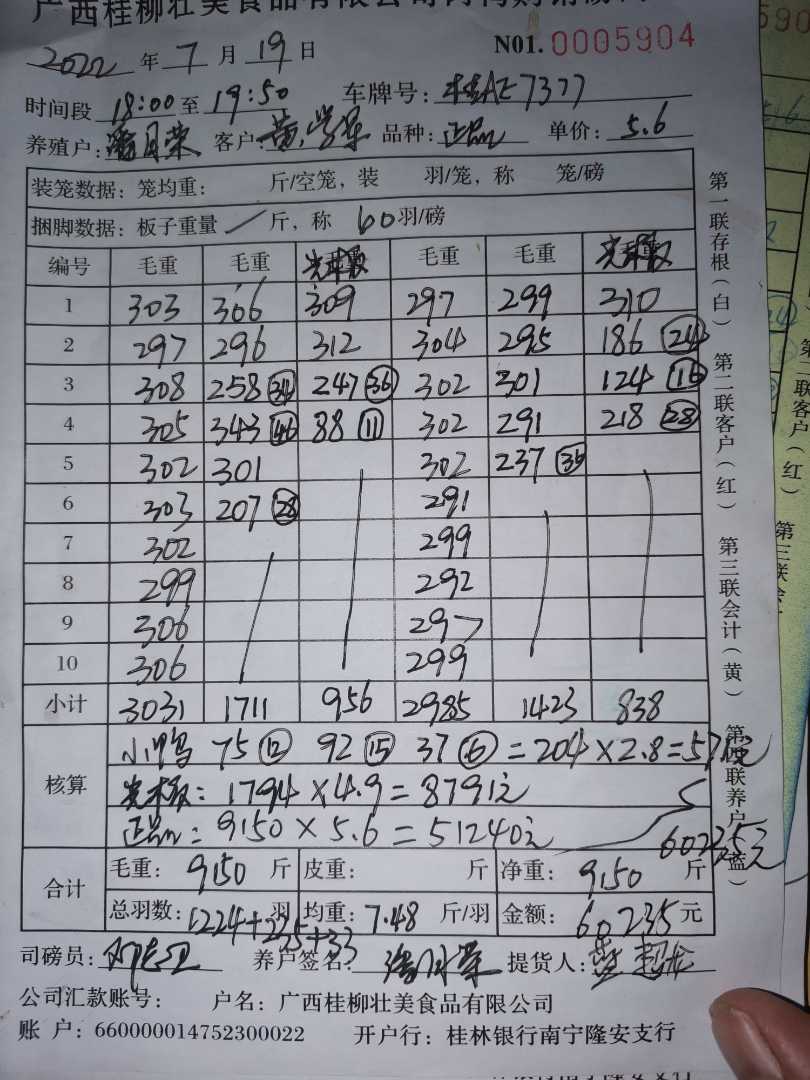 广西桂柳壮美食品有限公司
2022年7月19日 N01. 0005904
时间段 18:00至19:50 车牌号:桂AE7377
养殖户:潘月荣 客户:黄 品种:正品 单价:5.6
装笼数据:笼均重: 斤/空笼,装 羽/笼,称 笼/磅
捆脚数据:板子重量 / 斤,称 60羽/磅
编号 毛重 毛重 毛重 毛重
1 303 306 309 297 299 310
2 297 296 312 304 295 186 24
3 308 258 34 247 36 302 301 124 16
4 305 343 46 88 11 302 291 218 28
5 302 301 302 237 36
6 303 207 28 291
7 302 299
8 299 292
9 306 297
10 306 299
小计 3031 1711 956 2985 1423 838
核算 小鸭 75 12 92 15 37 6 =204×2.8=571元
1794×4.9=8791元
正品:9150×5.6=51240元
合计 毛重:9150斤 皮重: 斤 净重:9150斤
总羽数:1224+225+33羽 均重:7.48斤/羽 金额:60235元
司磅员: 养户签名:潘月荣 提货人:
公司汇款账号: 户名:广西桂柳壮美食品有限公司
账 户:660000014752300022 开户行:桂林银行南宁隆安支行
第一联存根(白)
第二联客户(红)
第三联会计(黄)
第四联养户(蓝)